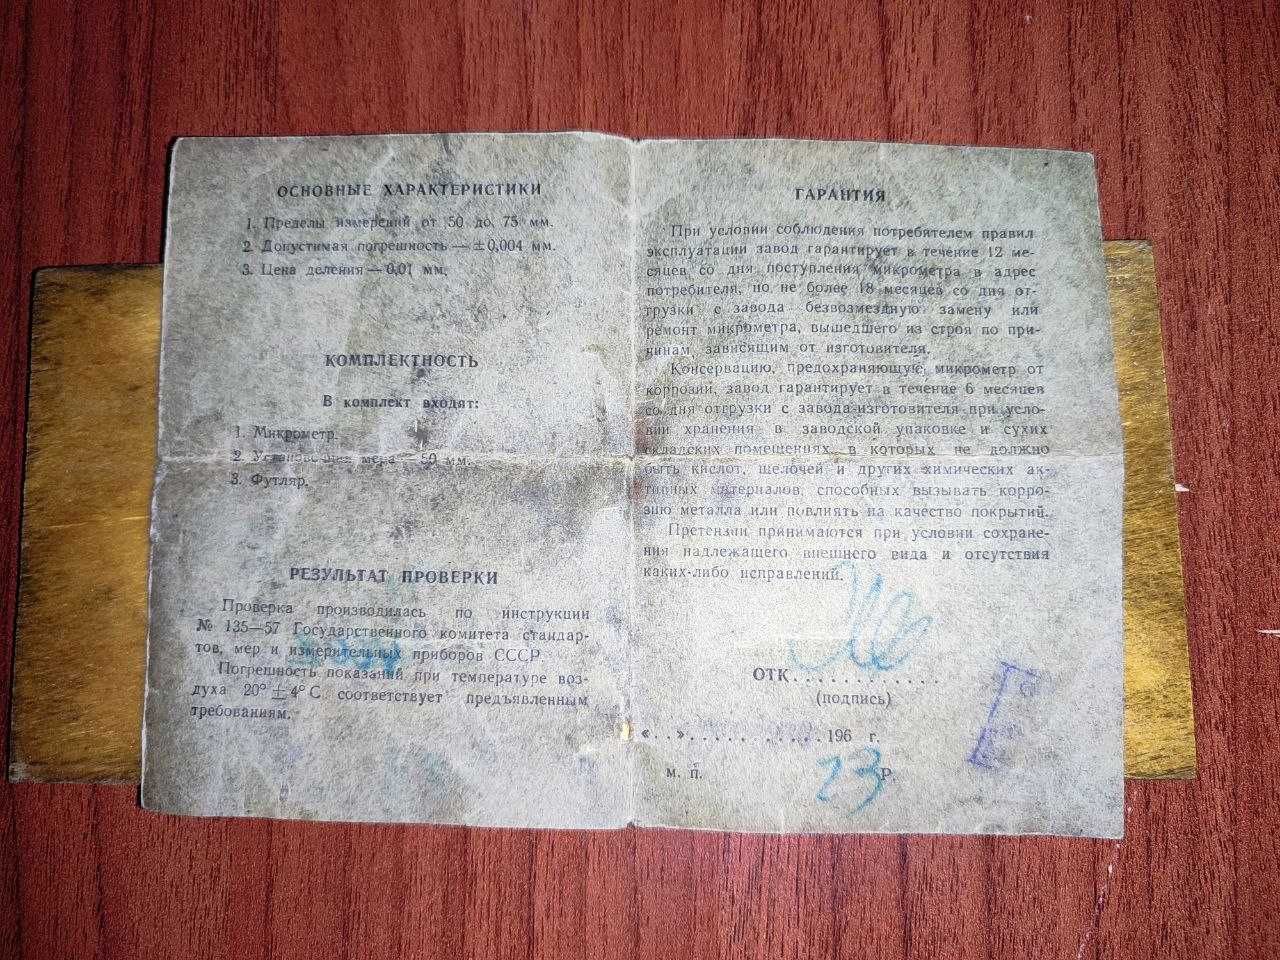 ОСНОВНЫЕ ХАРАКТЕРИСТИКИ
1. Пределы измерений от 50 до 75 мм.
2. Допустимая погрешность — ±0,004 мм.
3. Цена деления — 0,01 мм.
КОМПЛЕКТНОСТЬ
В комплект входят:
1. Микрометр.
2. Установочная мера — 50 мм.
3. Футляр.
РЕЗУЛЬТАТ ПРОВЕРКИ
Проверка производилась по инструкции
№ 135—57 Государственного комитета стандар-
тов, мер и измерительных приборов СССР.
Погрешность показаний при температуре воз-
духа 20° ± 4° С соответствует предъявленным
требованиям.
ГАРАНТИЯ
При условии соблюдения потребителем правил
эксплуатации завод гарантирует в течение 12 ме-
сяцев со дня поступления микрометра в адрес
потребителя, но не более 18 месяцев со дня от-
грузки с завода безвозмездную замену или
ремонт микрометра, вышедшего из строя по при-
чинам, зависящим от изготовителя.
Консервацию, предохраняющую микрометр от
коррозии, завод гарантирует в течение 6 месяцев
со дня отгрузки с завода-изготовителя при усло-
вии хранения в заводской упаковке и сухих
складских помещениях, в которых не должно
быть кислот, щелочей и других химических ак-
тивных материалов, способных вызывать корро-
зию металла или повлиять на качество покрытий.
Претензии принимаются при условии сохране-
ния надлежащего внешнего вида и отсутствия
каких-либо исправлений.
ОТК. . . . . . . . . . . .
(подпись)
«. .». . . . . . . . . . .196 г.
м. п. 23 Р.